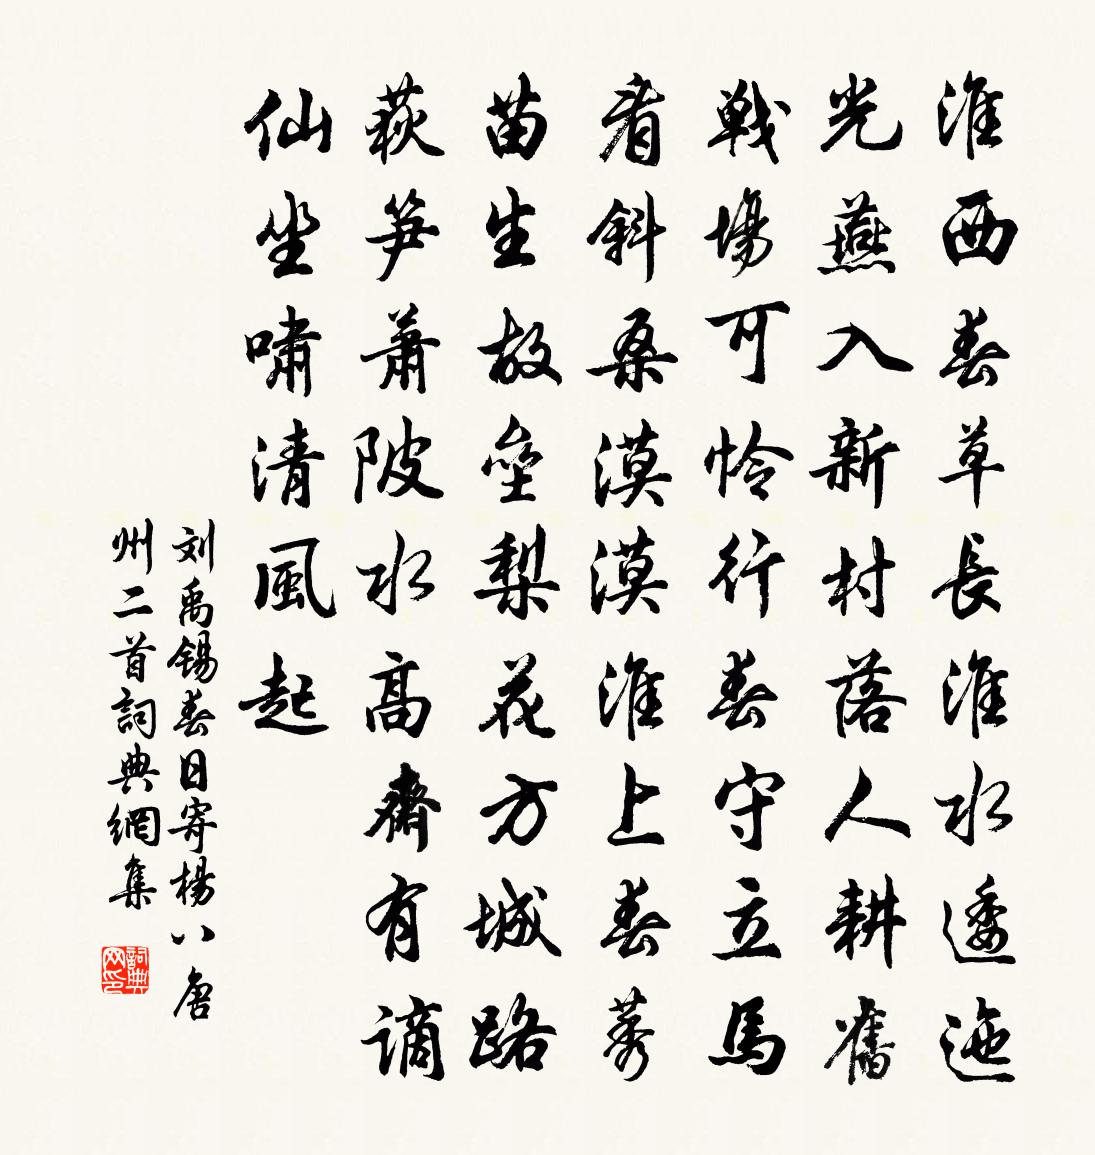 淮西春草長淮水逶迤
光燕入新村落人耕舊
戦場可怜行春守立馬
看斜桑漠漠淮上春莠
苗生故垒梨花方城路
荻笋蕭陂水高齋有謫
仙坐嘯清風起
刘禹錫春日寄楊八唐
州二首詞典網集
詞典
网印